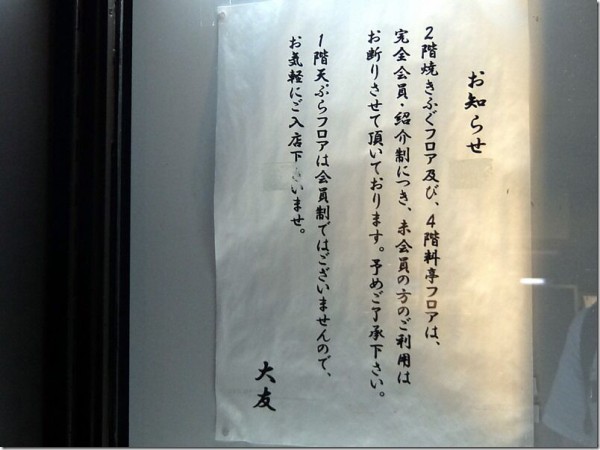 お知らせ
2階焼きふぐフロア及び、4階料亭フロアは、
完全会員・紹介制につき、未会員の方のご利用は
お断りさせて頂いております。予めご了承下さい。
1階天ぷらフロアは会員制ではございませんので、
お気軽にご入店下さいませ。
大友